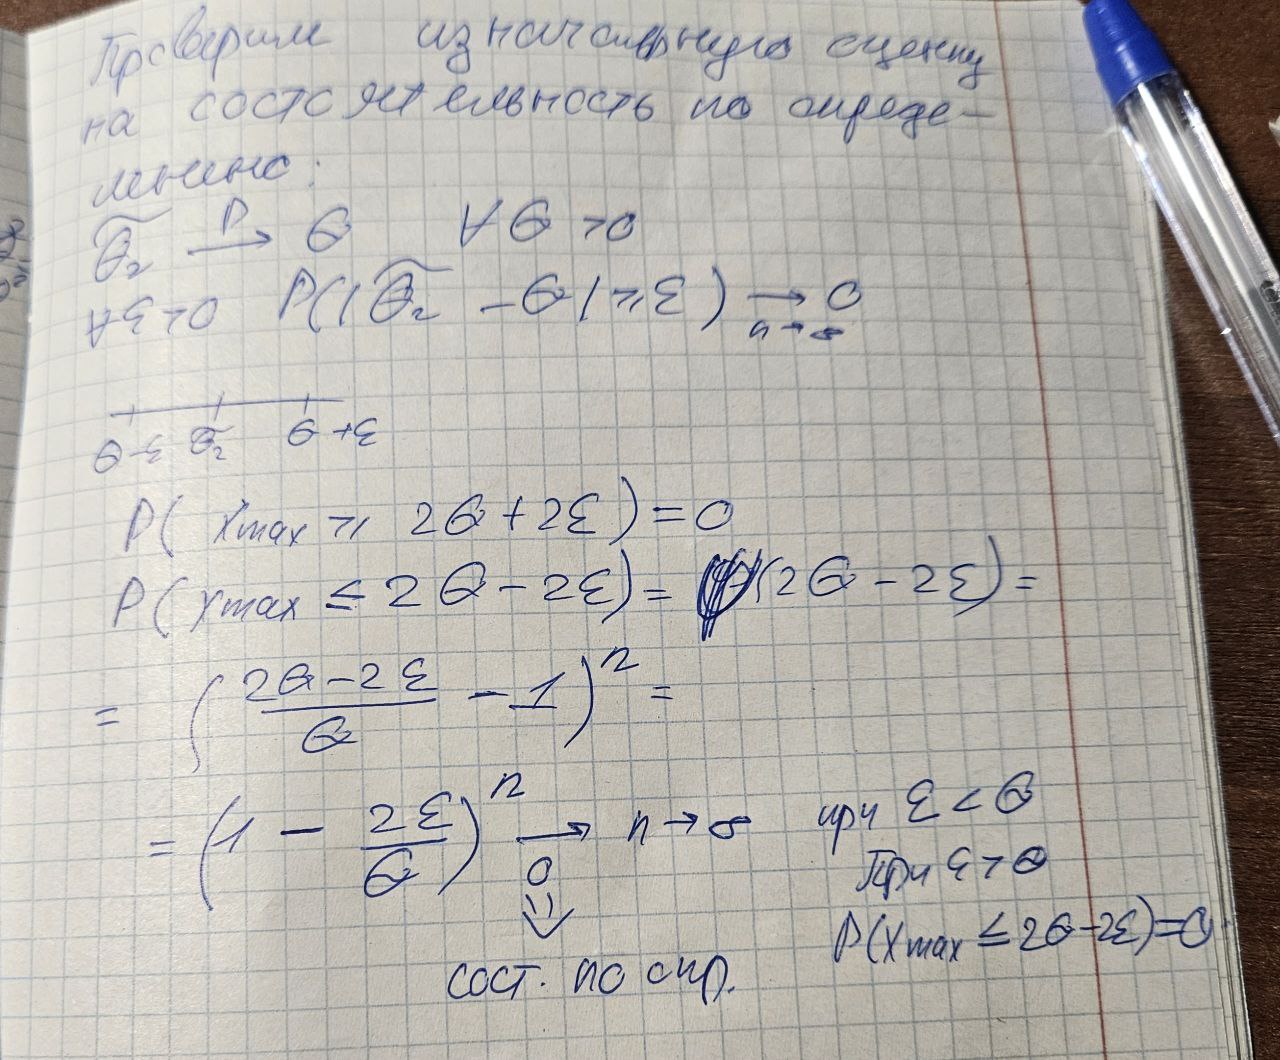 Проверим изначальную оценку
на состоятельность по опреде-
лению:
θ̃₂ →ᴾ θ ∀θ > 0
∀ε > 0 P(|θ̃₂ - θ| ≥ ε) → 0
n → ∞
θ-ε θ̃₂ θ+ε
P(Xmax ≥ 2θ + 2ε) = 0
P(Xmax ≤ 2θ - 2ε) = (2θ - 2ε) =
= ((2θ - 2ε)/θ - 1)ⁿ =
= (1 - 2ε/θ)ⁿ → 0 n → ∞ при ε < θ
При ε > θ
P(Xmax ≤ 2θ - 2ε) = 0
⇓
сост. по опр.